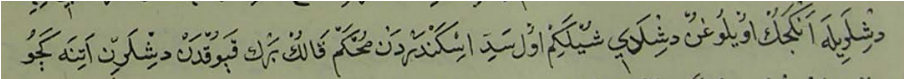 دشلريله آنكجك اويلوغن دشلدي شيلكم اول سد اسكندردن محكم قالڭ برك قپوقدن دشلرن اتنه كچو